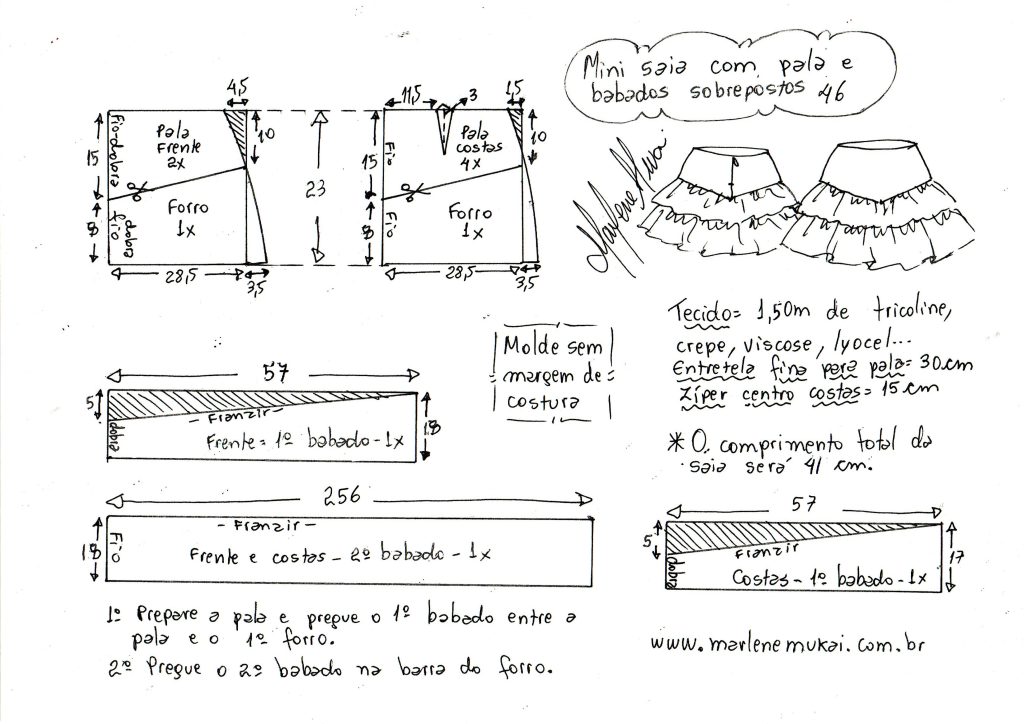 Mini saia com pala e
babados sobrepostos 46
4,5
11,5
3
1,5
Fio-dobra
Pala
Frente
2x
10
15
23
Fio
Pala
costas
4x
10
15
Forro
1x
dobra
fio
8
28,5
3,5
Forro
1x
Fio
8
28,5
3,5
Marlene Mukai
Tecido= 1,50m de tricoline,
crepe, viscose, lyocel...
Entretela fina para pala= 30cm
Zíper centro costas= 15cm
* O comprimento total da
saia será 41 cm.
Molde sem
margem de
costura
57
5
- Franzir -
dobra
Frente= 1º babado-1x
18
256
- Franzir -
18
Fio
Frente e costas - 2º babado - 1x
57
5
Franzir
dobra
Costas - 1º babado - 1x
17
1º Prepare a pala e pregue o 1º babado entre a
pala e o 1º forro.
2º Pregue o 2º babado na barra do forro.
www.marlenemukai.com.br